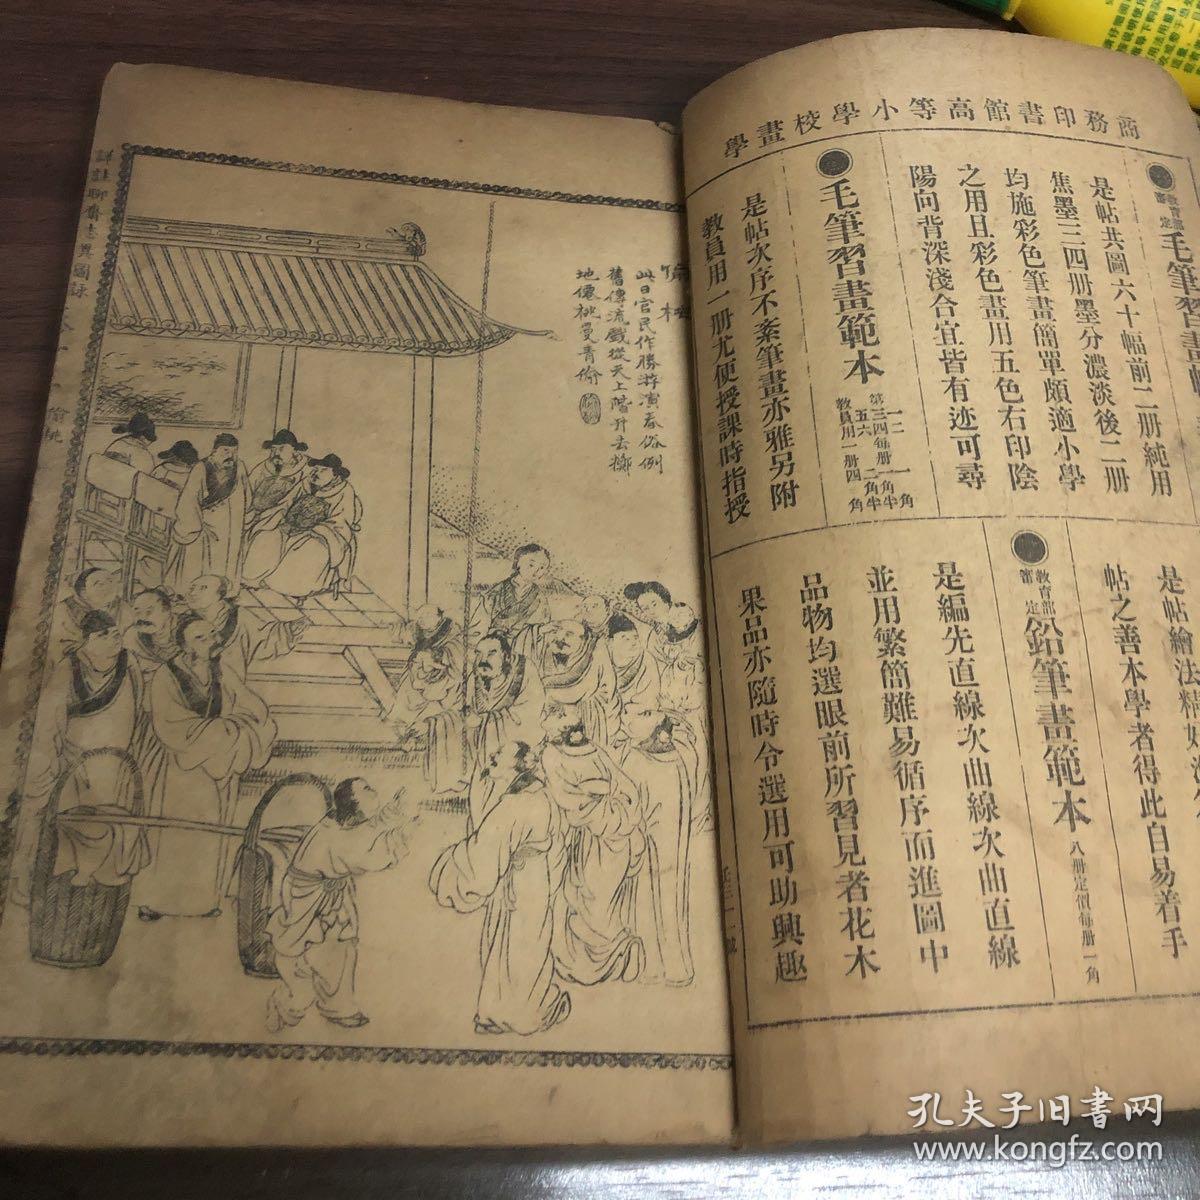 商務印書館高等小學校畫學
教育部審定
毛筆習畫帖
是帖共圖六十幅前二册純用
焦墨三四册墨分濃淡後二册
均施彩色筆畫簡單頗適小學
之用且彩色畫用五色石印陰
陽向背深淺合宜皆有迹可尋
毛筆習畫範本
一二
第三四每册
五六
一角
一角半
二角半
教員用一册四角
是帖次序不紊筆畫亦雅另附
教員用一册尤便授課時指授
是帖繪法精
帖之善本學者得此自易着手
教育部審定
鉛筆畫範本
八册定價每册一角
是編先直線次曲線次曲直線
並用繁簡難易循序而進圖中
品物均選眼前所習見者花木
果品亦隨時令選用可助興趣
偷桃
此日官民作勝游演春俗例
舊傳流戲從天上階升去擲
地僊桃曼青偷
詳註聊齋志異圖詠
偷桃
孔夫子旧书网
www.kongfz.com